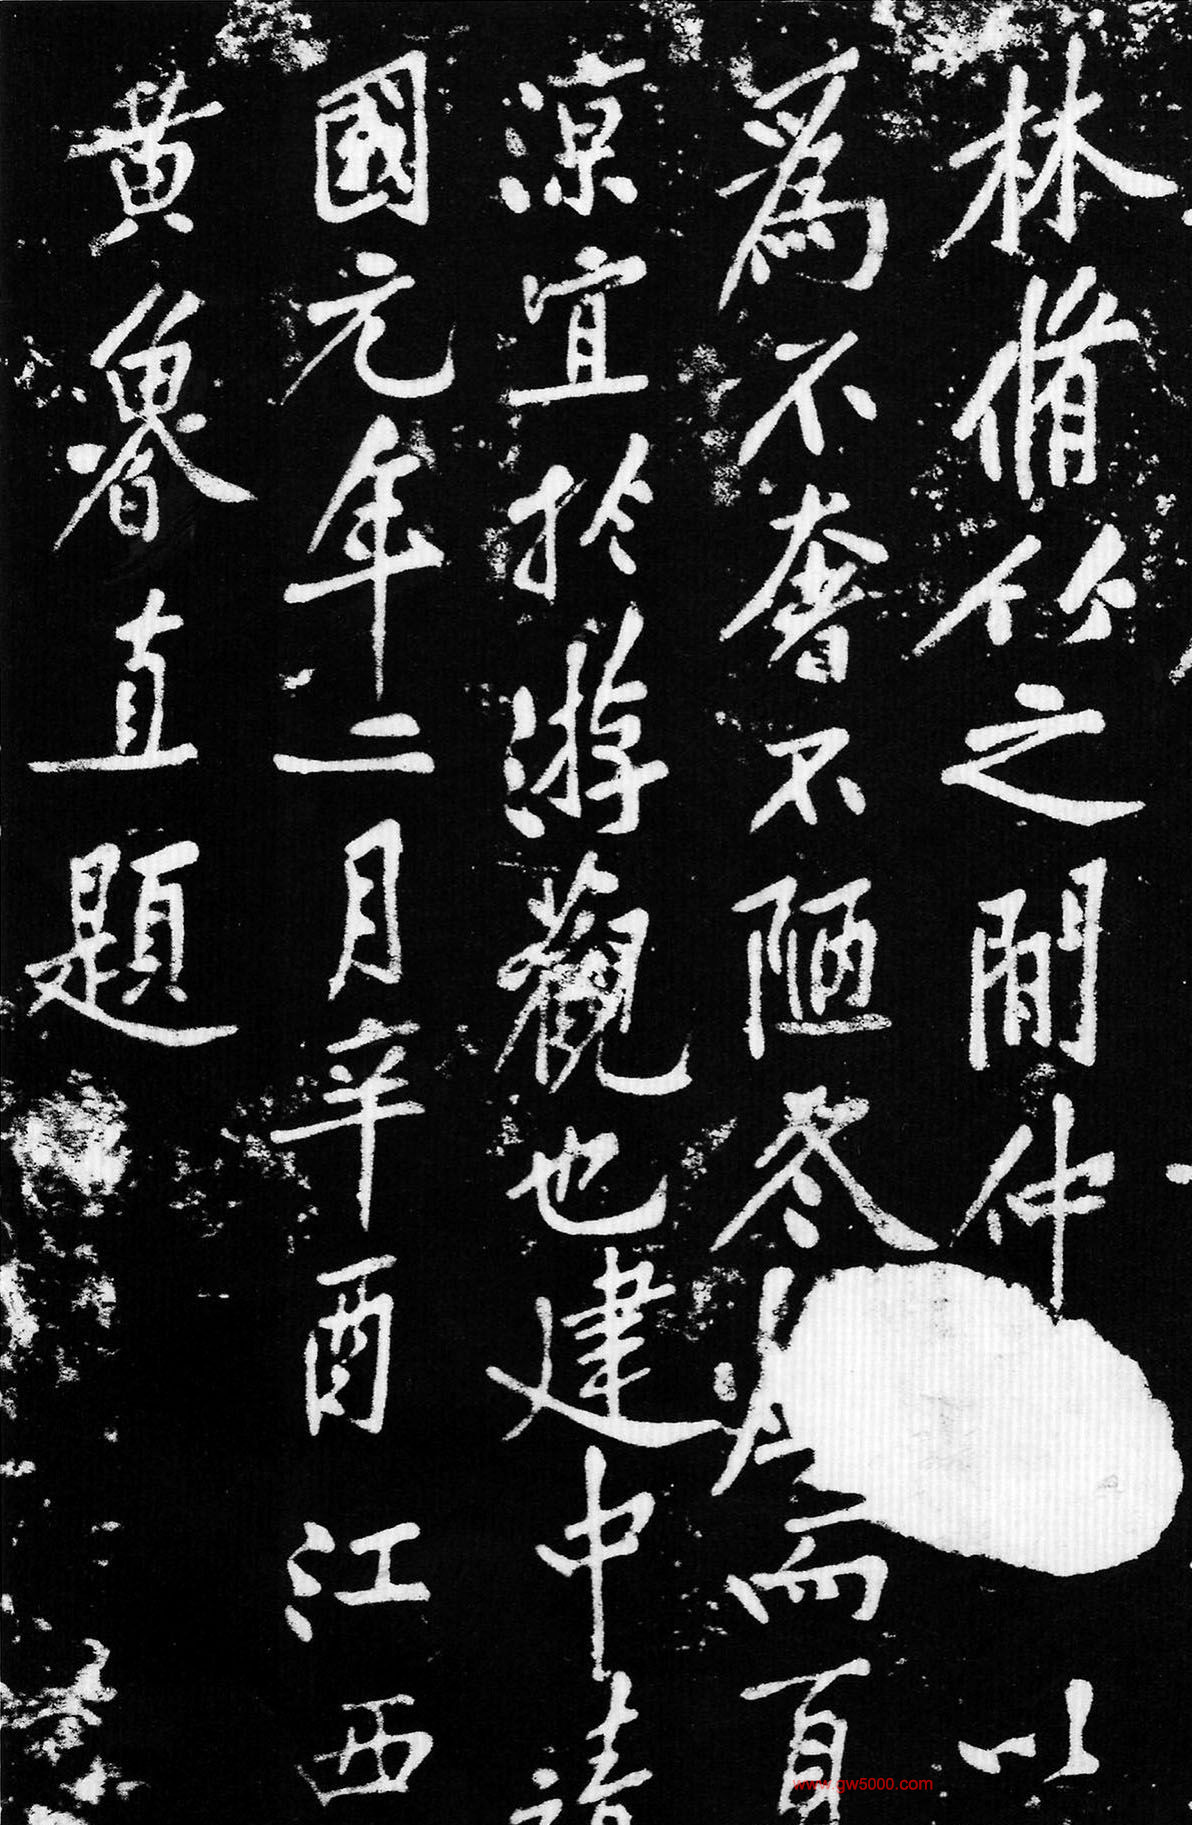 林脩竹之閒仲以
爲不奢不陋冬而夏
涼宜於游觀也建中靖
國元年二月辛酉江西
黄魯直題
www.gw5000.com